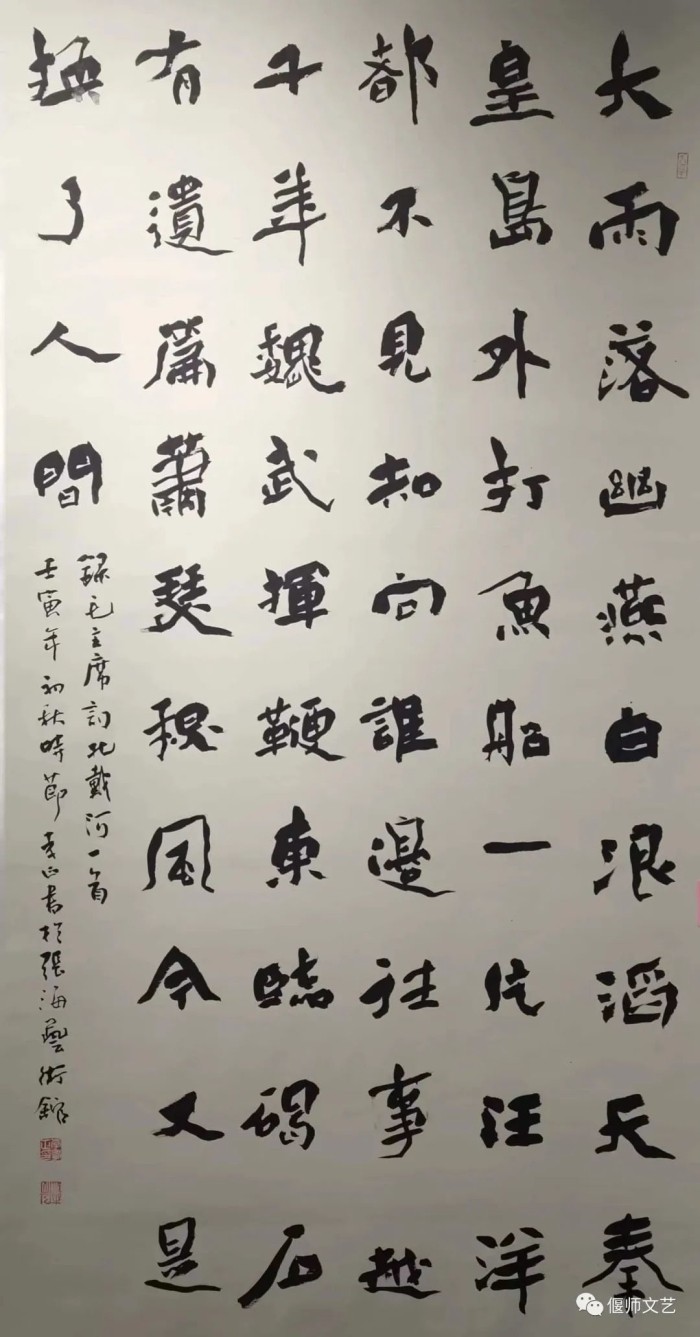 大雨落幽燕白浪滔天秦
皇島外打魚船一片汪洋
都不見知向誰邊往事越
千年魏武揮鞭東臨碣石
有遺篇蕭瑟秋風今又是
換了人間
錄毛主席詞北戴河一首
壬寅年初秋時節書於張海藝術館
偃师文艺